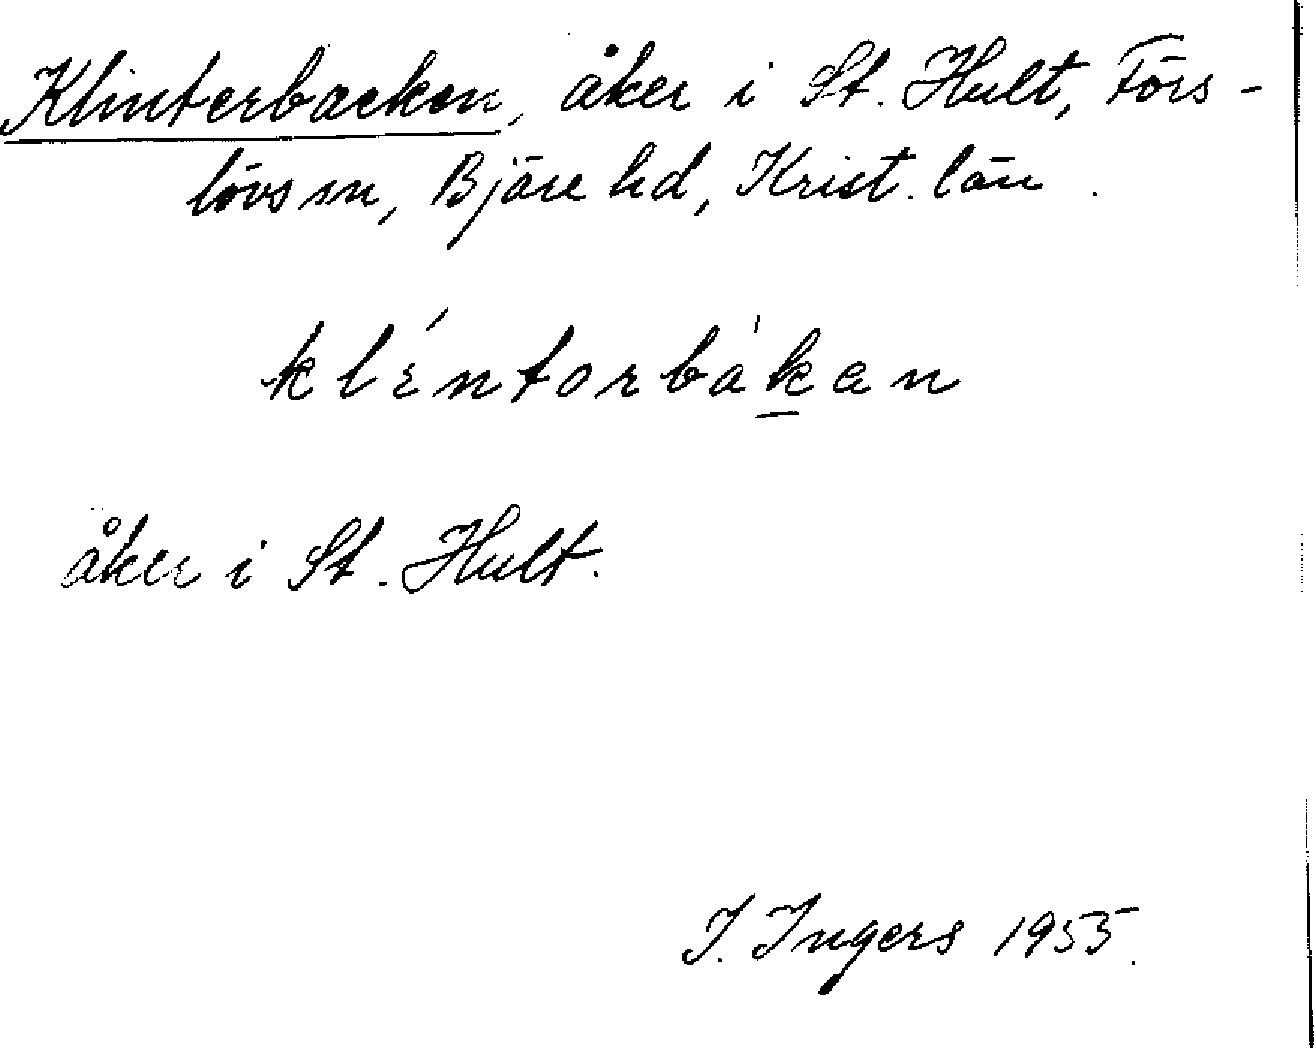 Klinterbacken, åker i St. Hult, Förs-
lövs sn, Bjäre hd, Krist. län.
klintorbakan
åker i St. Hult.
I. Ingers 1955.